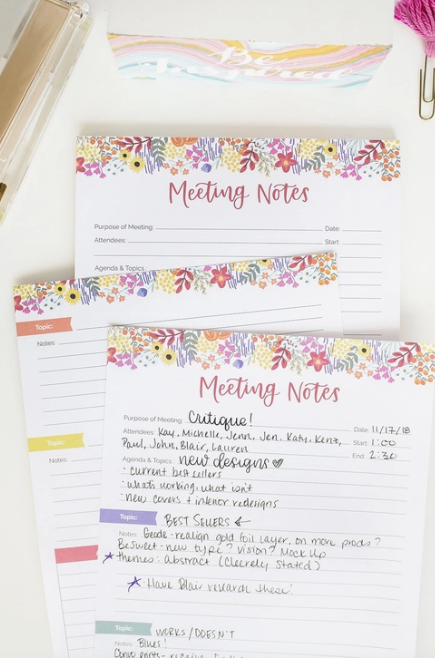 Be
Inspired
Meeting Notes
Purpose of Meeting: Date:
Attendees: Start
Agenda & Topics
Topic:
Notes:
Topic:
Notes:
Meeting Notes
Purpose of Meeting: Critique! Date: 11/17/18
Attendees: Kay, Michelle, Jenn, Jen, Katy, Kenz, Start: 1:00
Paul, John, Blair, Lauren End: 2:30
Agenda & Topics: new designs
· current best sellers
· what's working, what isn't
· new covers + interior redesigns
Topic: BEST SELLERS ←
Notes: Geode - realign gold foil layer, on more prods?
BeSweet - new type? Vision? Mock Up
themes: Abstract (Cleerely Stated)
· Have Blair research these!
Topic: WORKS / DOESN'T
Notes: Blues!